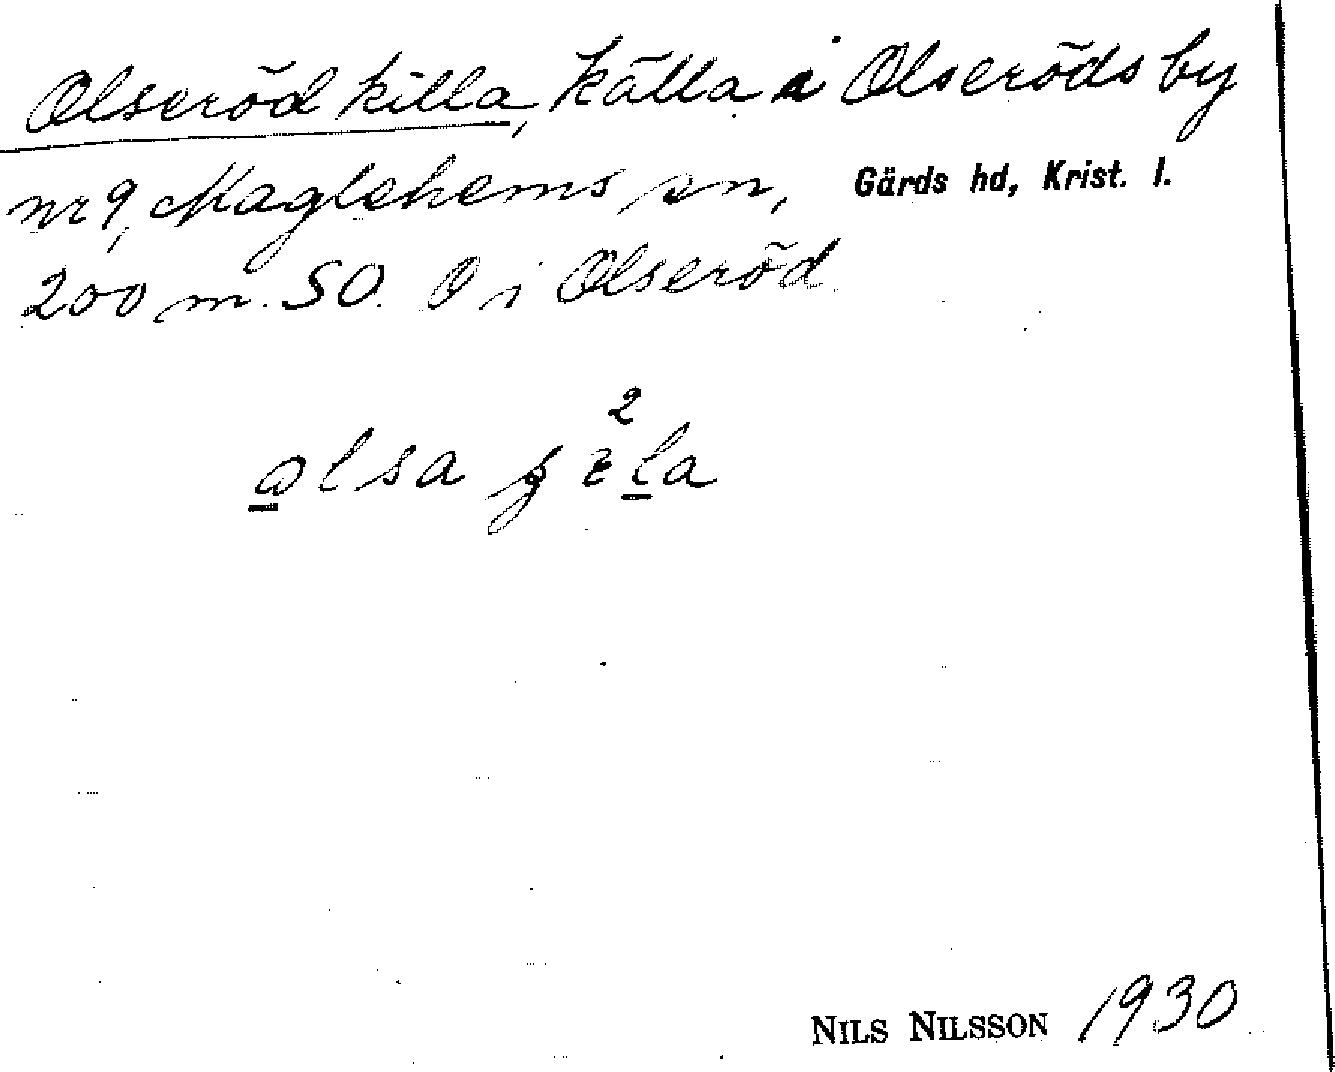 Olseröd killa, källa i Olseröds by
nr 9, Maglehems sn, Gärds hd, Krist. l.
200 m. SO. O i Olseröd.
2
NILS NILSSON 1930